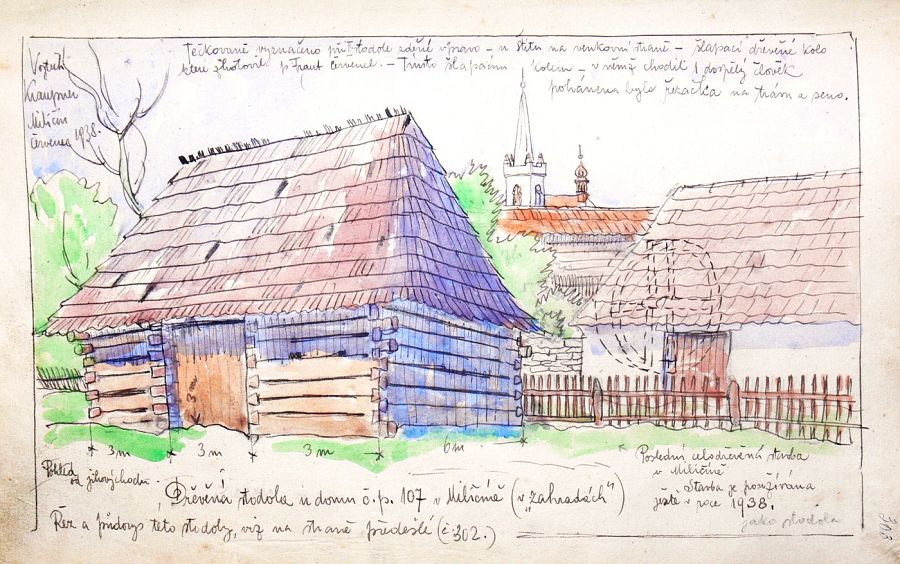 Tečkovaně vyznačeno při II stodole zděné vpravo – u štítu na venkovní straně – šlapací dřevěné kolo
které zhotovil p. Červenec. – Tímto šlapacím kolem – v němž chodil 1 dospělý člověk
poháněna byla řezačka na trám a seno.
Vojtěch
Kraupner
Miličín
červenec 1938.
3m
3m
3m
3m
6m
Pohled
od jihovýchodu.
Dřevěná stodola u domu č.p. 107 v Miličíně (v „zahradách“)
Řez a půdorys této stodoly, viz na straně předešlé (č. 302.)
Poslední celodřevěná stavba
v Miličíně
Stavba je používána
ještě v roce 1938.
jako stodola
303